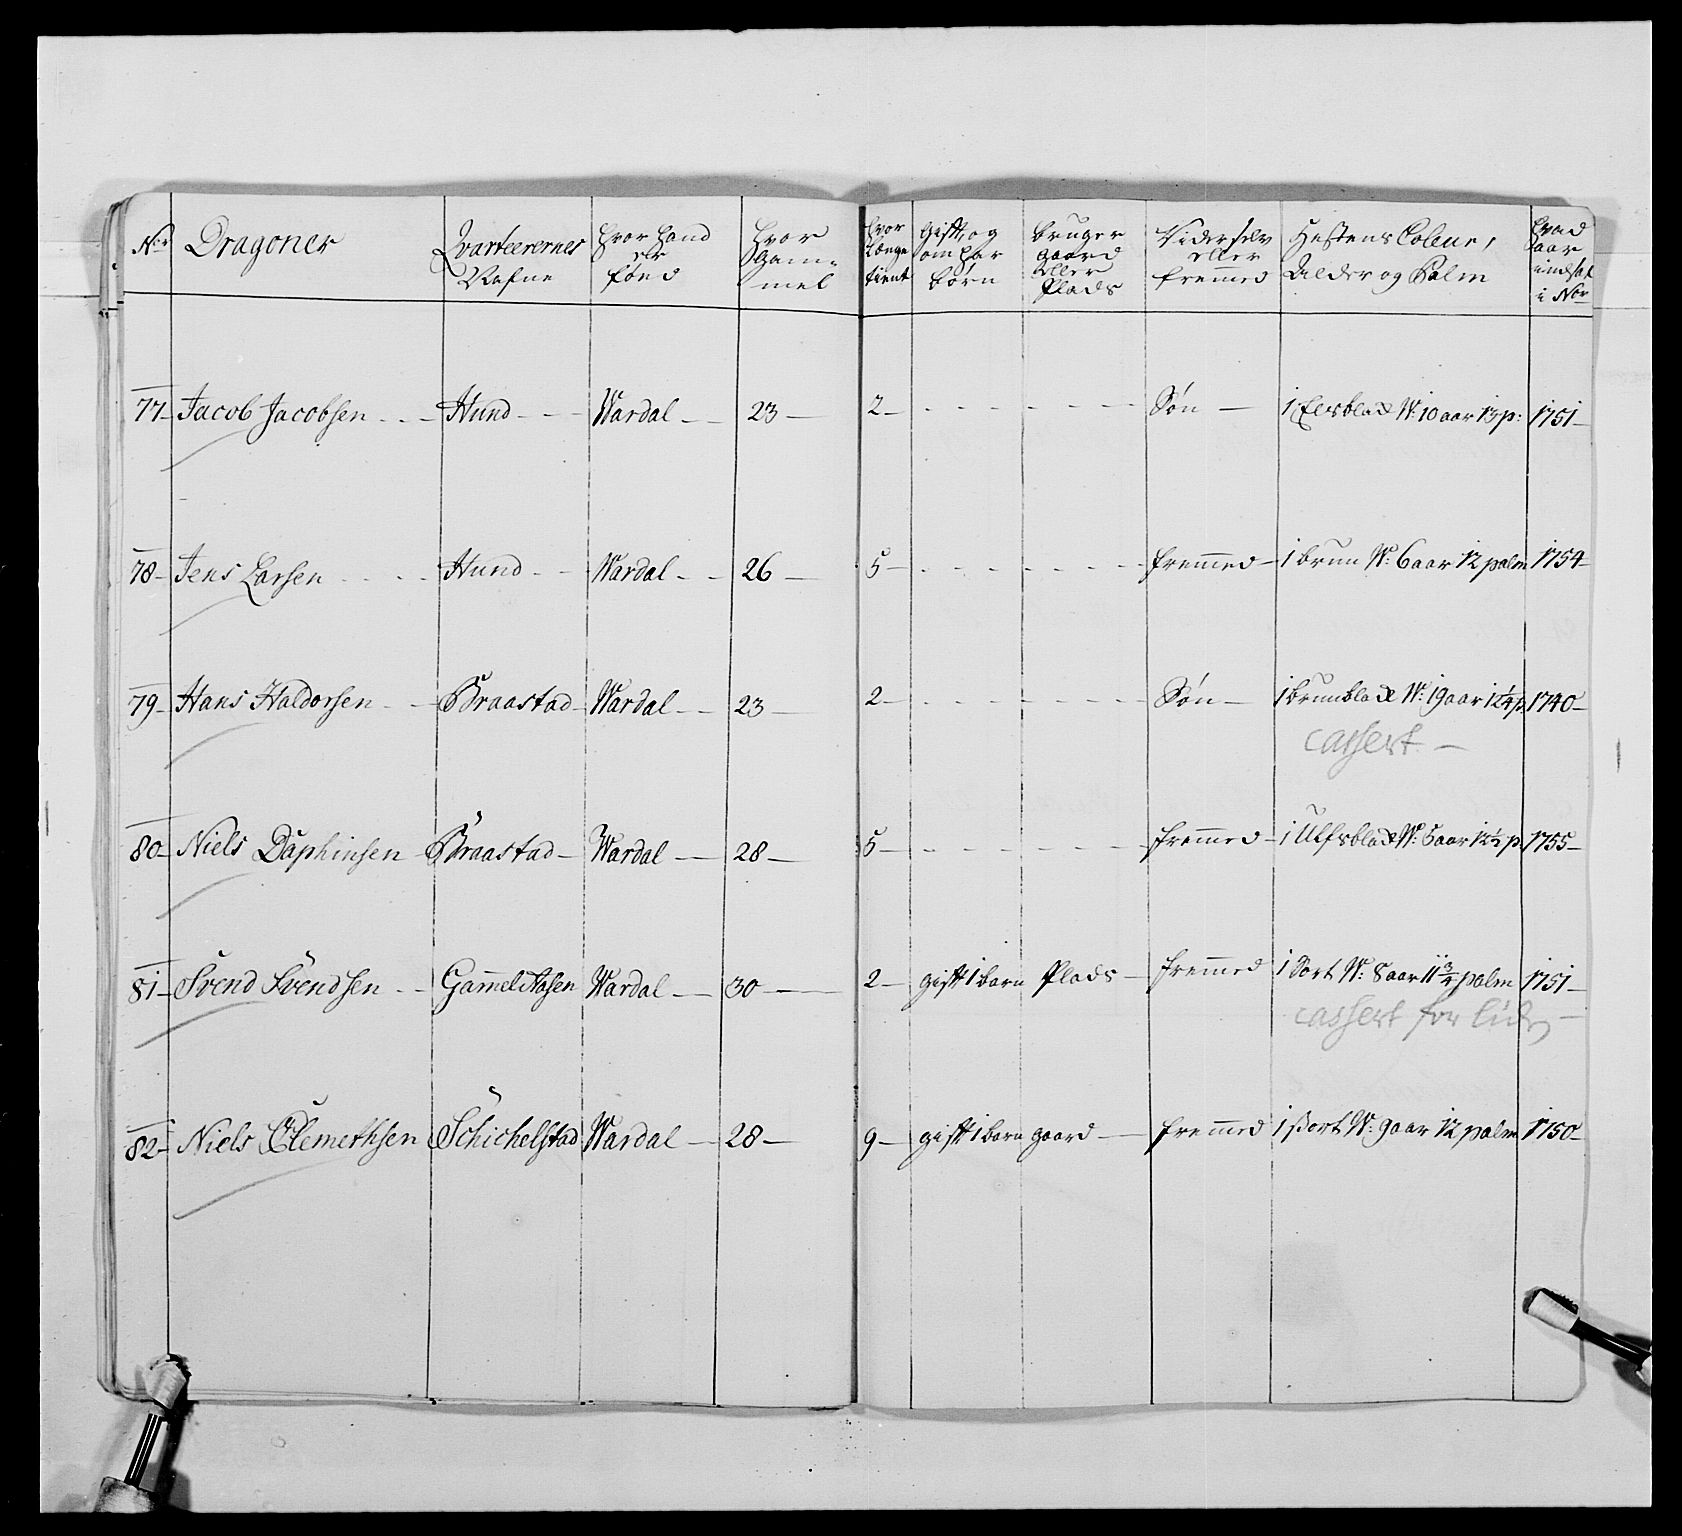 Nr Dragoner Qvarteerernes Nafne hvor hand er føed hvor Gammel hvor længe tient Gift, og om har børn bruger gaard eller Plads Rider selv eller fremmed Hestens Coleur, Alder og Palm hvad aar indsat i Nor
77 Jacob Jacobsen Hund Wardal 23 2 Søn 1 W: 10 aar 13 p: 1751
78 Jens Larsen Hund Wardal 26 5 fremmed 1 brun W: 6 aar 12 palm 1754
79 Hans Haldorsen Braastad Wardal 23 2 Søn 1 brunblact W: 19 aar 12 1/4 p 1740
cassert
80 Niels Daphinsen Braastad Wardal 28 5 fremmed 1 Ulfsblact W: 5 aar 12 1/2 p 1755
81 Svend Svendsen Gammel Aasen Wardal 30 2 gift 1 barn Plads fremmed 1 Sort W: 8 aar 11 3/4 palm 1751
cassert for
82 Niels Clemethsen Schichelstad Wardal 28 9 gift 1 barn gaard fremmed 1 sort W: 9 aar 12 palm 1750